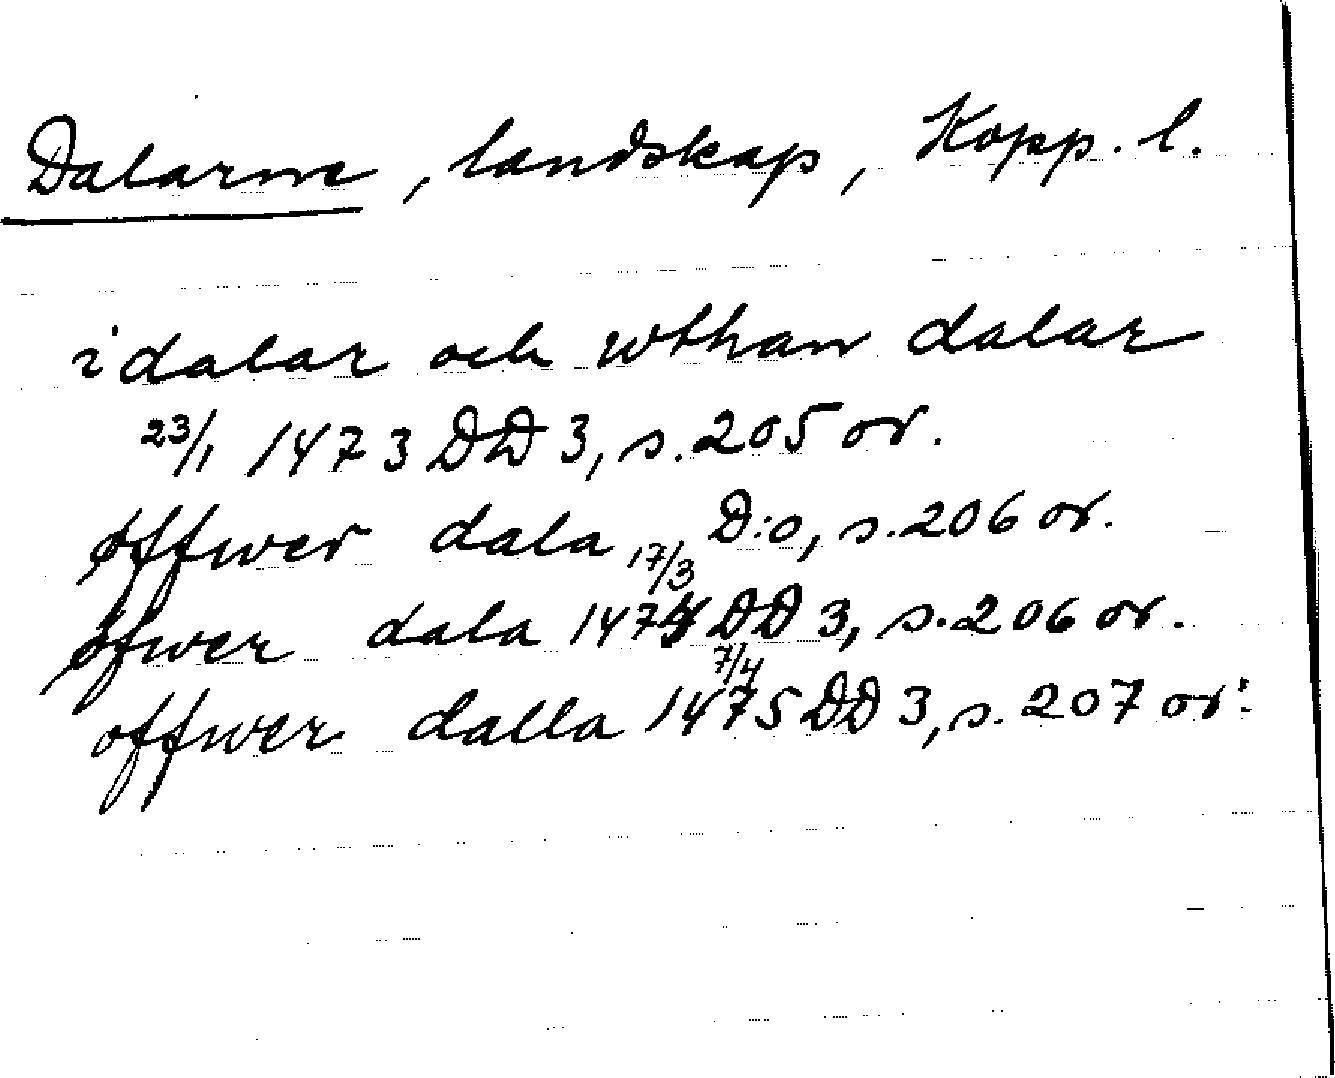 Dalarne, landskap, Kopp. l.
i dalar och wthan dalar
23/1 1473 DD 3, s. 205 or.
øffwer dala D:o, s. 206 or.
øfwer dala 17/3 1474 DD 3, s. 206 or.
offwer dalla 7/4 1475 DD 3, s. 207 or.